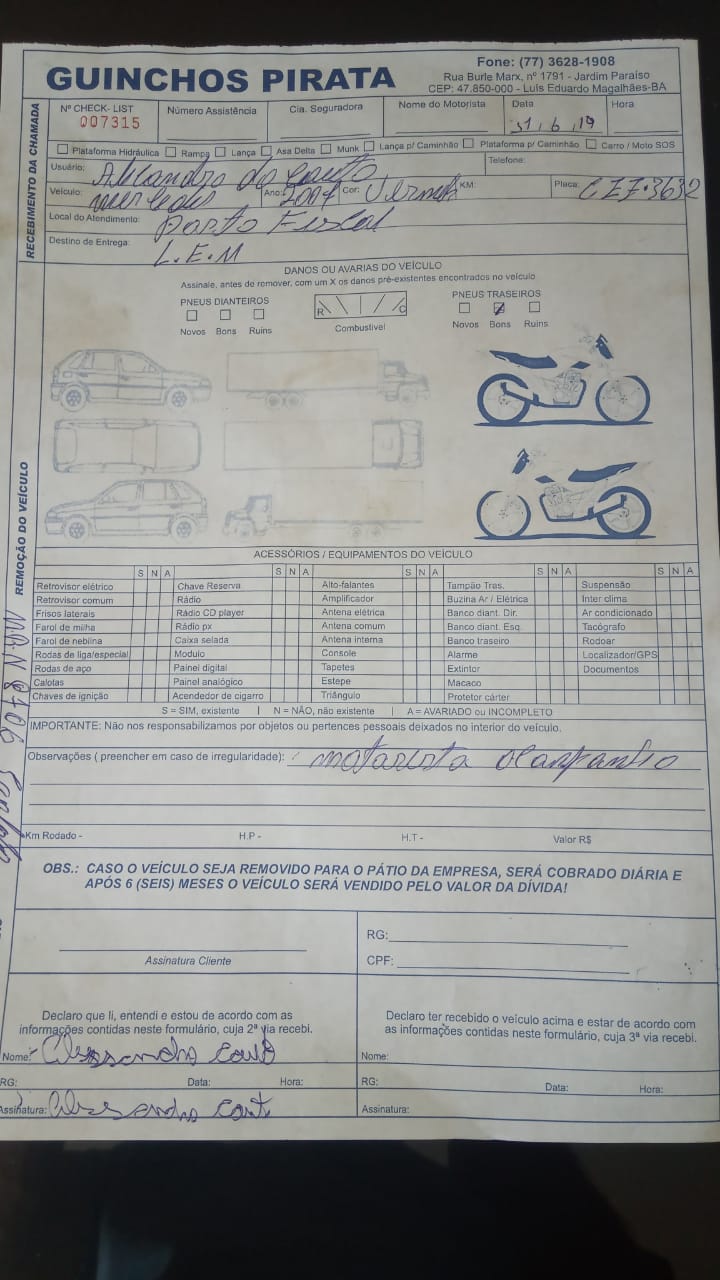 GUINCHOS PIRATA
Fone: (77) 3628-1908
Rua Burle Marx, nº 1791 - Jardim Paraíso
CEP: 47.850-000 - Luís Eduardo Magalhães-BA
RECEBIMENTO DA CHAMADA
Nº CHECK- LIST Número Assistência Cia. Seguradora Nome do Motorista Data Hora
007315 31,6,19
Plataforma Hidráulica Rampa Lança Asa Delta Munk Lança p/ Caminhão Plataforma p/ Caminhão Carro / Moto SOS
Usuário: Telefone:
Veículo: Ano: 2007 Cor: KM: Placa: CZZ.3632
Local do Atendimento: Posto Fiscal
Destino de Entrega: L.E.M
REMOÇÃO DO VEÍCULO
DANOS OU AVARIAS DO VEÍCULO
Assinale, antes de remover, com um X os danos pré-existentes encontrados no veículo
PNEUS DIANTEIROS PNEUS TRASEIROS
Novos Bons Ruins R C Combustível Novos Bons Ruins
ACESSÓRIOS / EQUIPAMENTOS DO VEÍCULO
S N A S N A S N A S N A S N A
Retrovisor elétrico Chave Reserva Alto-falantes Tampão Tras. Suspensão
Retrovisor comum Rádio Amplificador Buzina Ar / Elétrica Inter clima
Frisos laterais Rádio CD player Antena elétrica Banco diant. Dir. Ar condicionado
Farol de milha Rádio px Antena comum Banco diant. Esq. Tacógrafo
Farol de neblina Caixa selada Antena interna Banco traseiro Rodoar
Rodas de liga/especial Modulo Console Alarme Localizador/GPS
Rodas de aço Painei digital Tapetes Extintor Documentos
Calotas Painel analógico Estepe Macaco
Chaves de ignição Acendedor de cigarro Triângulo Protetor cárter
S = SIM, existente | N = NÃO, não existente | A = AVARIADO ou INCOMPLETO
IMPORTANTE: Não nos responsabilizamos por objetos ou pertences pessoais deixados no interior do veículo.
Observações ( preencher em caso de irregularidade): motorista
Km Rodado - H.P - H.T - Valor R$
OBS.: CASO O VEÍCULO SEJA REMOVIDO PARA O PÁTIO DA EMPRESA, SERÁ COBRADO DIÁRIA E
APÓS 6 (SEIS) MESES O VEÍCULO SERÁ VENDIDO PELO VALOR DA DÍVIDA!
Assinatura Cliente
RG:
CPF:
Declaro que li, entendi e estou de acordo com as
informações contidas neste formulário, cuja 2ª via recebi.
Nome:
RG: Data: Hora:
Assinatura:
Declaro ter recebido o veículo acima e estar de acordo com
as informações contidas neste formulário, cuja 3ª via recebi.
Nome:
RG: Data: Hora:
Assinatura: